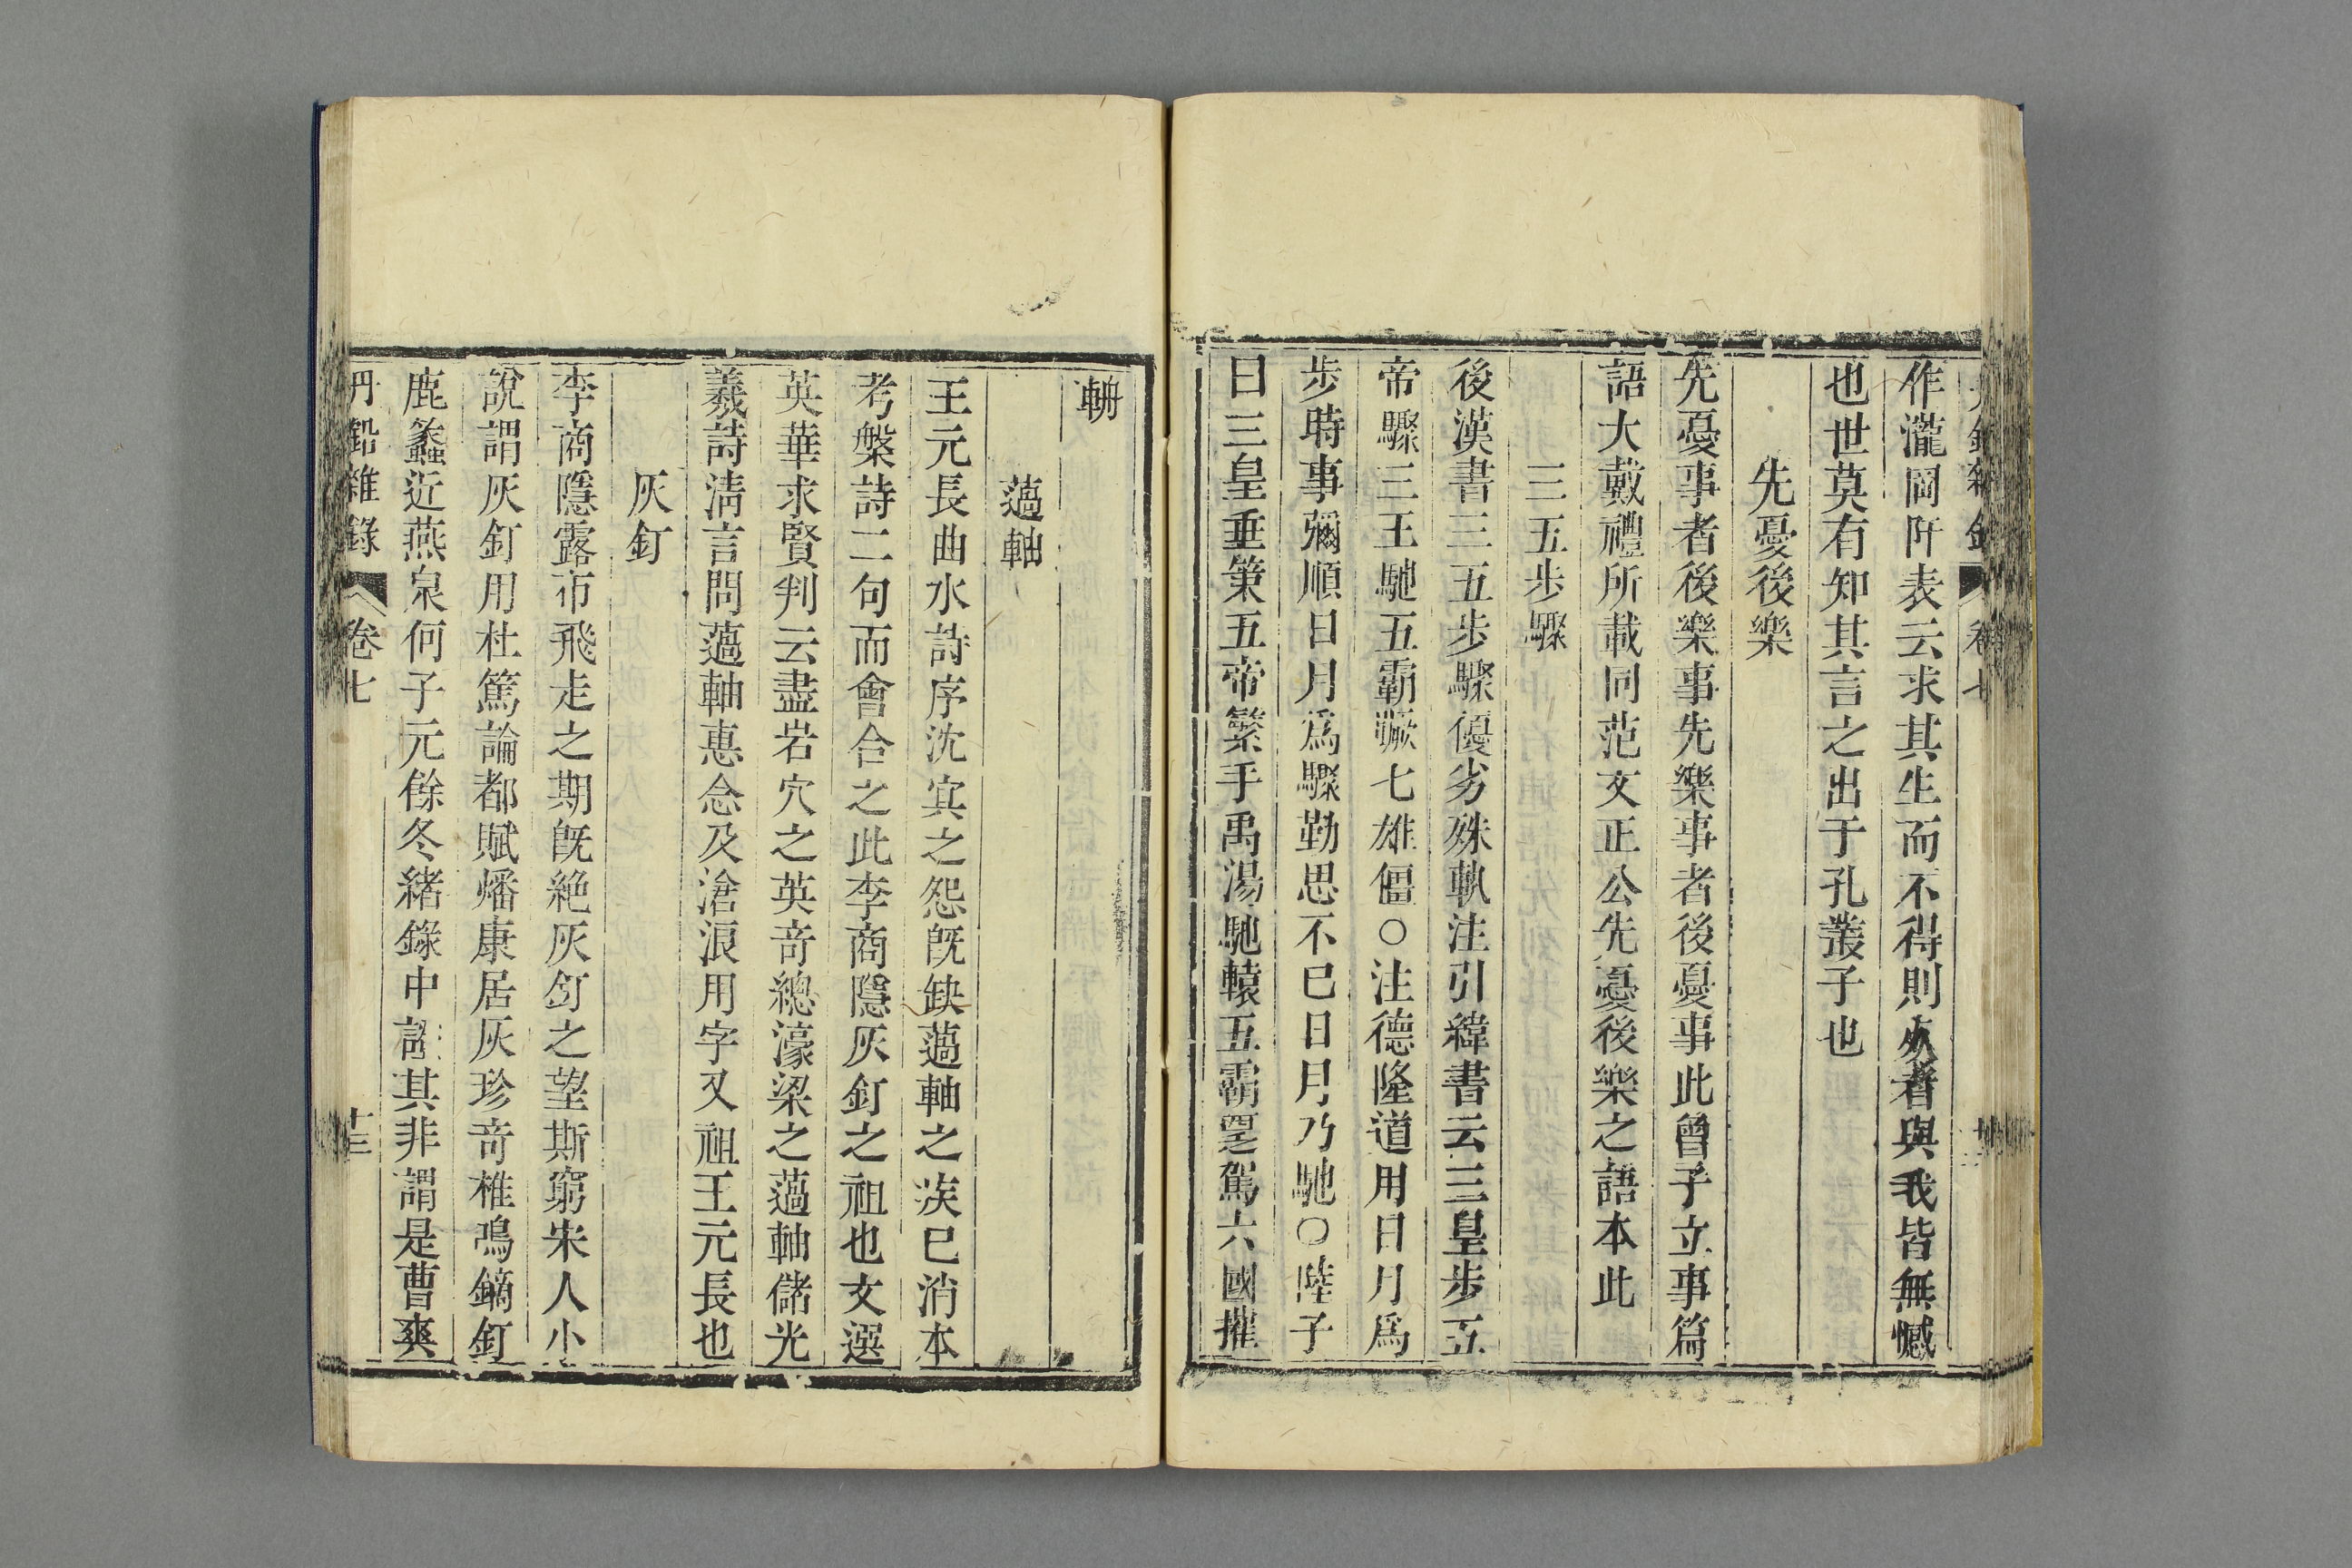 作瀧岡阡表云求其生而不得則夾者與我皆無憾
也世莫有知其言之出于孔叢子也
先憂後樂
先憂事者後樂事先樂事者後憂事此曾子立事篇
語大戴禮所載同范文正公先憂後樂之語本此
三五步驟
後漢書三五步驟優劣殊軌注引緯書云三皇步五
帝驟三王馳五霸蹶七雄僵○注德隆道用日月爲
步時事彌順日月爲驟勤思不已日月乃馳○陸子
曰三皇垂策五帝繁手禹湯馳轅五霸駕六國摧
輧
薖軸
王元長曲水詩序沈㝠之怨旣缺薖軸之疾已消本
考槃詩二句而會合之此李商隱灰釘之祖也文選
英華求賢判云盡岩穴之英竒總濠梁之薖軸儲光
羲詩清言問薖軸惠念及滄浪用字又祖王元長也
灰釘
李商隱露布飛走之期旣絶灰釘之望斯窮宋人小
說謂灰釘用杜篤論都賦燔康居灰珍竒椎鳴鏑釘
鹿蠡近燕泉何子元餘冬緒錄中其非謂是曹爽
丹鉛雜錄 卷七 十三